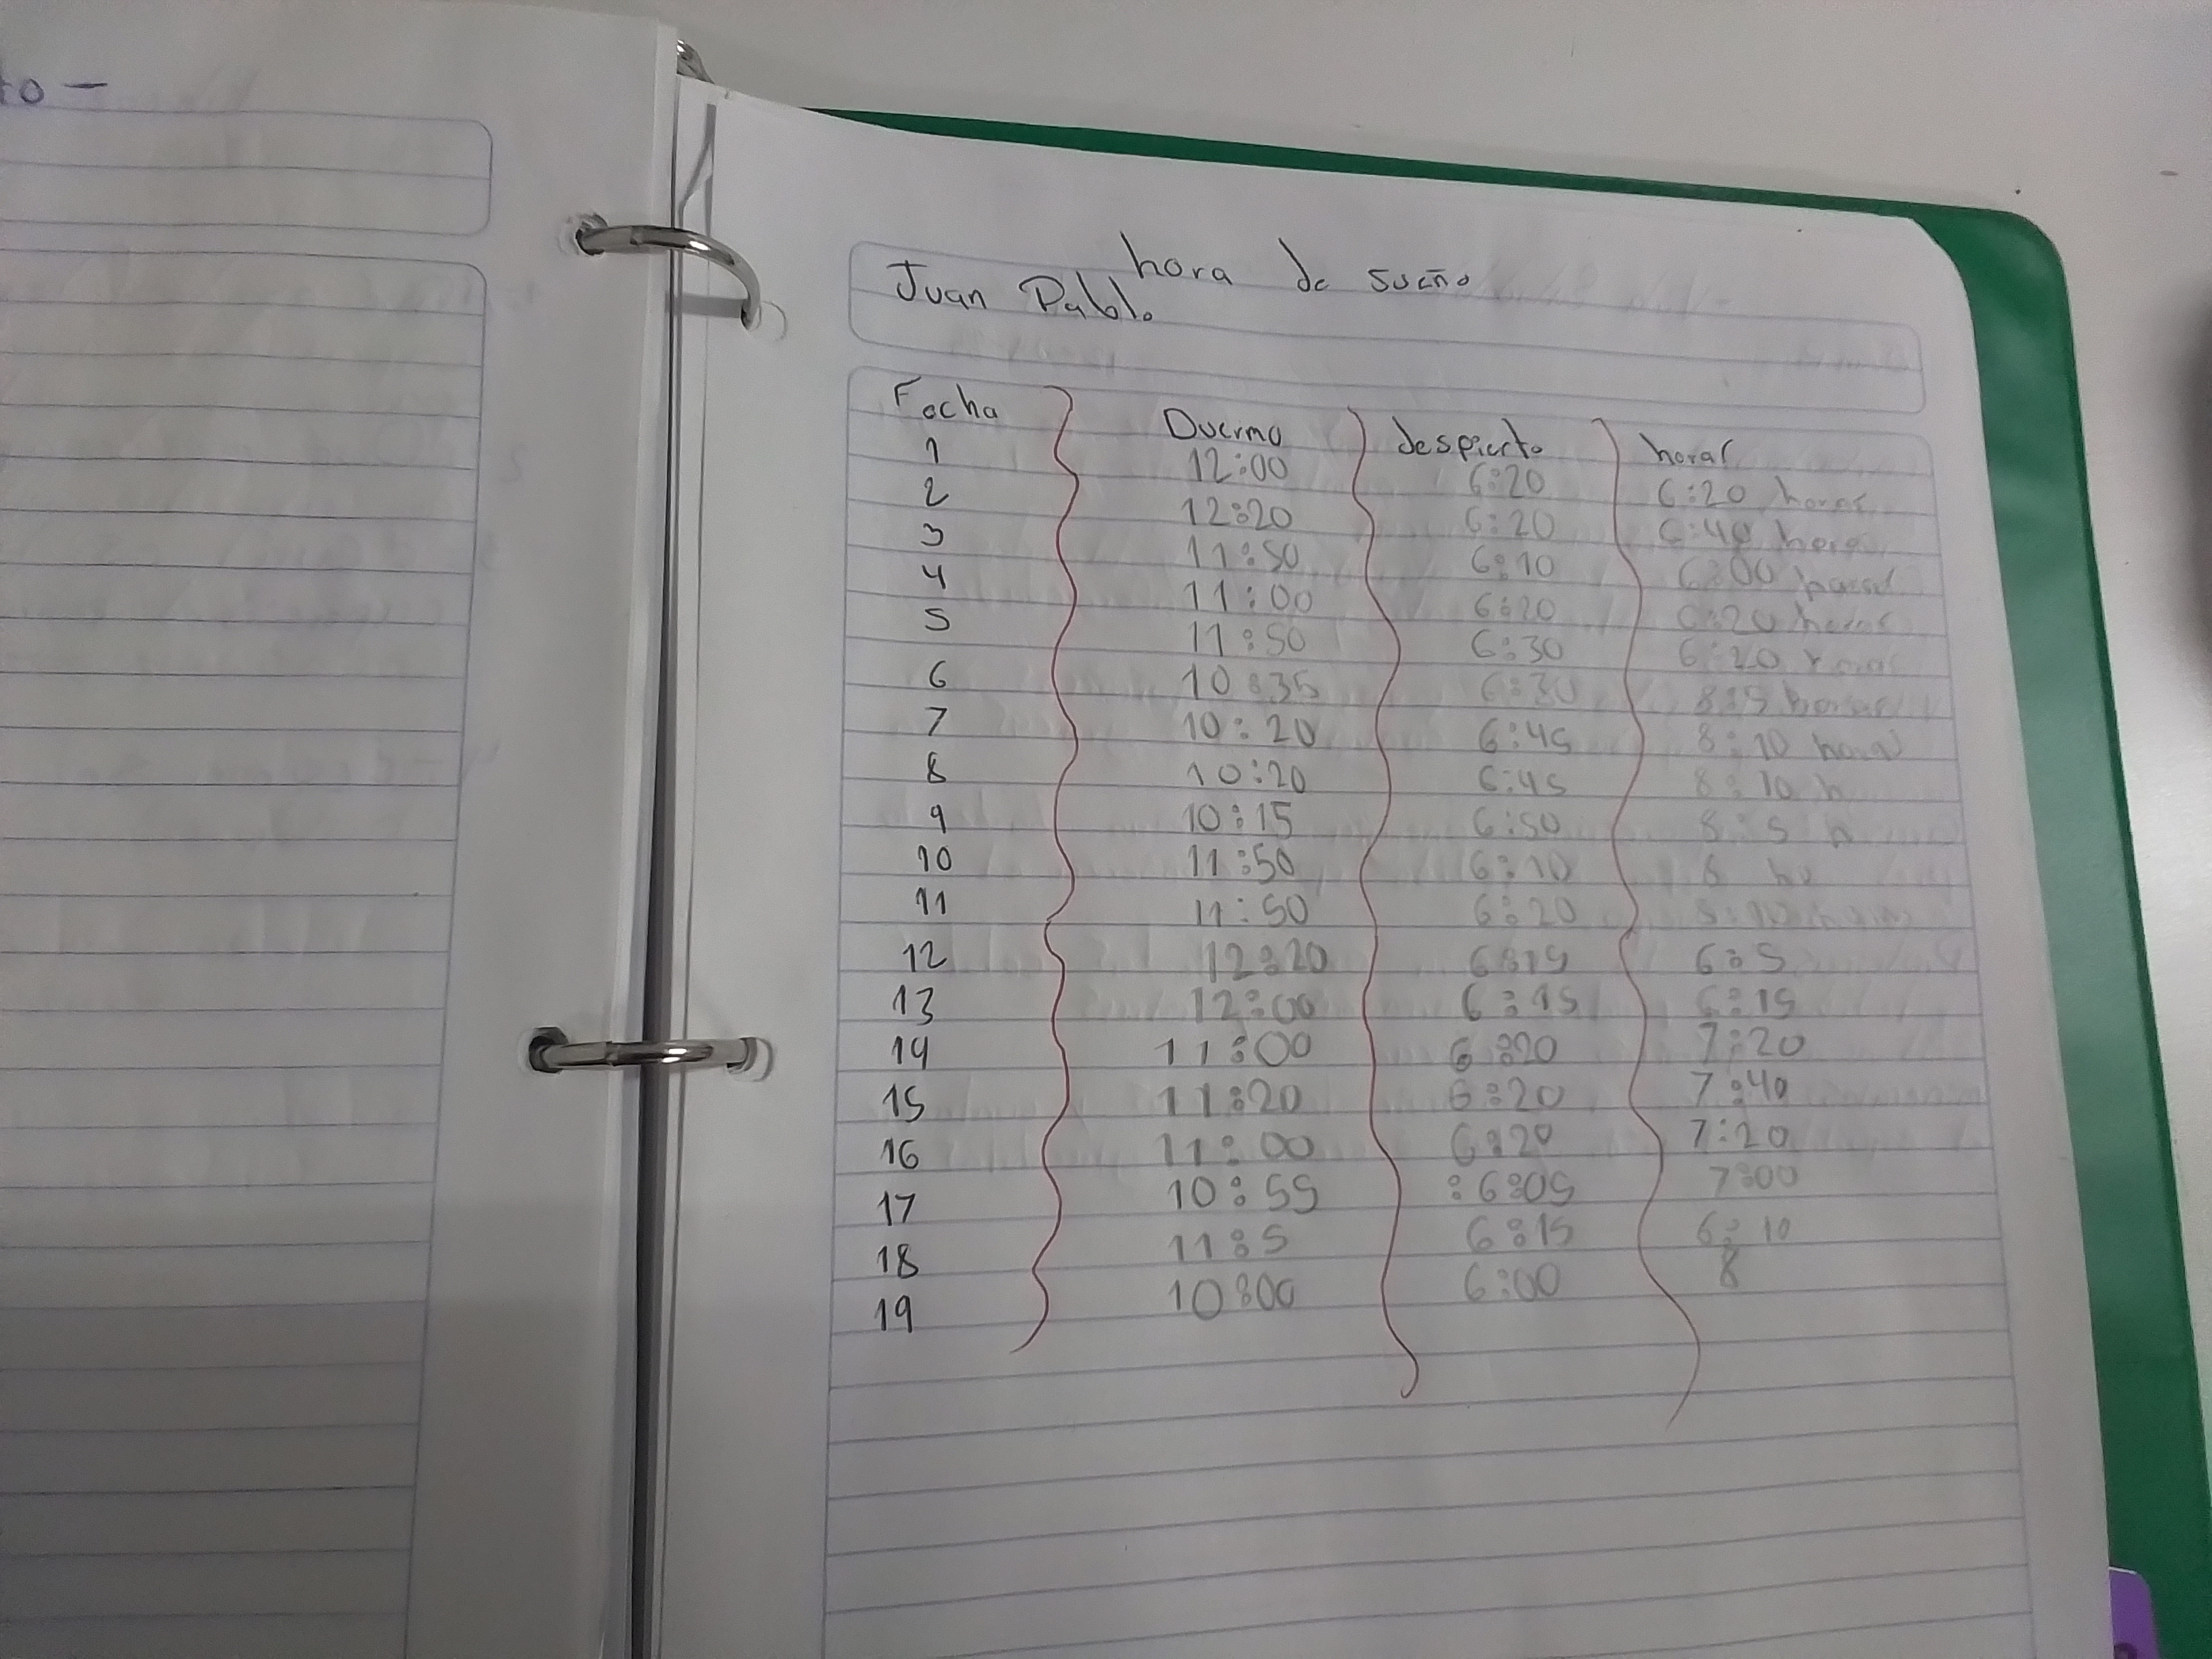 to -
hora de sueño
Juan Pablo
Fecha Duermo despierto horas
1 12:00 6:20 6:20 horas
2 12:20 6:20 6:40 horas
3 11:50 6:10 6:00 horas
4 11:00 6:20 6:20 horas
5 11:50 6:30 6:20 horas
6 10:35 6:30 8:5 horas
7 10:20 6:45 8:10 horas
8 10:20 6:45 8:10 h
9 10:15 6:50 8:5 h
10 11:50 6:10 ho
11 11:50 6:20 8:10 horas
12 12:20 6:15 6:5
13 12:00 6:15 6:15
14 11:00 6:20 7:20
15 11:20 6:20 7:40
16 11:00 6:20 7:20
17 10:55 :6:05 7:00
18 11:5 6:15 6:10
19 10:00 6:00 8